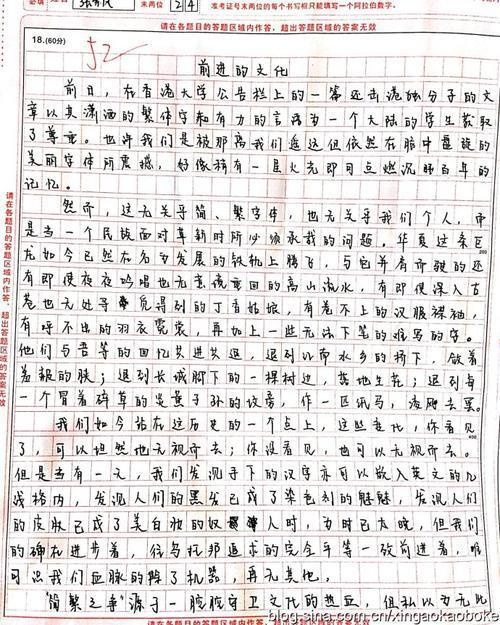 末两位 24 准考证号末两位的每个书写框只能填写一个阿拉伯数字。
请在各题目的答题区域内作答，超出答题区域的答案无效
18.(60分)
52
前进的文化
前日，在香港大学公告栏上的一篇还击港独分子的文
章以其潇洒的繁体字和有力的言语为一个大陆的学生获取
了尊重。也许我们是被那离我们遥远但依然在脑中盘旋的
美丽字体所震撼，好像稍有一星火光即可点燃沉睡百年的
记忆。
然而，这无关乎简、繁字体，也无关乎我们个人，而
是当一个民族面对革新时所必须承载的问题。华夏这条巨
龙如今已然在名为发展的铁轨上腾飞，与它并肩而驶的还
有即使夜夜吟唱也无袅袅重回的高山流水，有即使深入古
巷也无处寻觅得到的丁香姑娘，有卷不上的汉服裸袖，
有呼不出的羽衣霓裳，再加上一些无法下笔的难写的字。
他们与吾等的回忆共进共退，退到江南水乡的桥下，做着
羞赧的脉；退到长城脚下的一棵树边，落地生花；退到与
一个冒着碎草的炎黄子孙的坟旁，作一匹纸马，凌晚去罢。
我们如今站在这历史的一个点上，这些变化，你看见
了，可以坦然地无视而去；你没看见，也可以无视而去。
但是当有一天，我们发现手下的汉字亦可以嵌入英文的几
线格内，发现人们的黑发已成了染色剂的魅魅，发现人们
的皮肤已成了美白的奴人时，为时已太晚，但我们
的确在进步着，像乌托邦追求的完全平等一致前进着，唯
可况我们血脉的除了机器，再无其他。
“简繁之争”源于一腔腔守卫文化的热血，但私以为无此
200
400
请在各题目的答题区域内作答，超出答题区域的答案无效
blog.sina.com.cn/xingaokaoboke